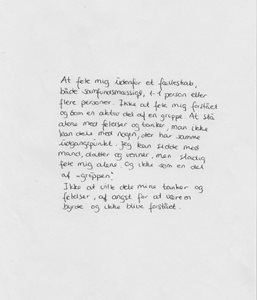 At føle mig udenfor et fælleskab,
både samfundsmæssigt, 1-1 person eller
flere personer. Ikke at føle mig forstået
og som en aktiv del af en gruppe. At stå
alene med følelser og tanker man ikke
kan dele med nogen, der har samme
udgangspunkt. Jeg kan sidde med
mand, døtre og venner, men stadig
føle mig alene. Og ikke som en del
af "gruppen".
Ikke at ville dele mine tanker og
følelser, af angst for at være en
byrde og ikke blive forstået.